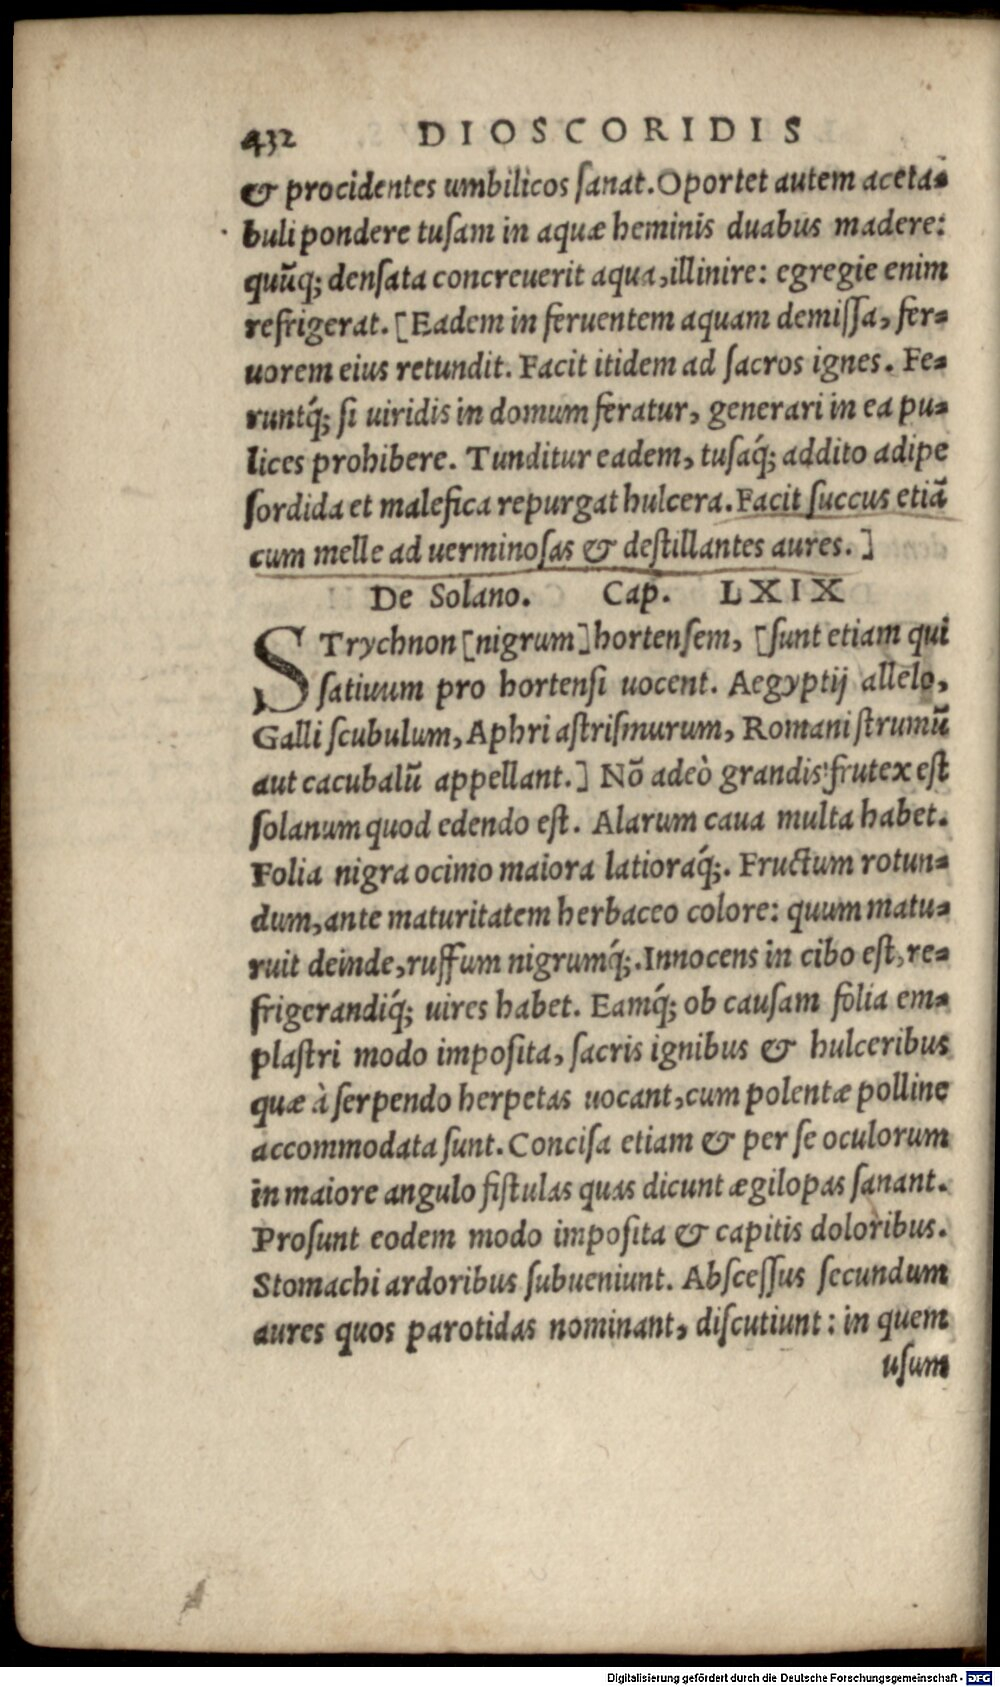 432 DIOSCORIDIS
& procidentes umbilicos ſanat. Oportet autem aceta-
buli pondere tuſam in aquæ heminis duabus madere:
quũq; denſata concreuerit aqua, illinire: egregie enim
refrigerat. [Eadem in feruentem aquam demiſſa, fer-
uorem eius retundit. Facit itidem ad ſacros ignes. Fe-
runtq́; ſi uiridis in domum feratur, generari in ea pu-
lices prohibere. Tunditur eadem, tuſaq́; addito adipe
ſordida et malefica repurgat hulcera. Facit ſuccus etiã
cum melle ad uerminoſas & deſtillantes aures. ]
De Solano. Cap. LXIX
STrychnon [nigrum] hortenſem, [ſunt etiam qui
ſatiuum pro hortenſi uocent. Aegyptij allelo,
Galli ſcubulum, Aphri aſtriſmurum, Romani ſtrumũ
aut cacubalũ appellant.] Nõ adeò grandis frutex eſt
ſolanum quod edendo eſt. Alarum caua multa habet.
Folia nigra ocimo maiora latioraq́;. Fructum rotun-
dum, ante maturitatem herbaceo colore: quum matu-
ruit deinde, ruffum nigrumq́;. Innocens in cibo eſt, re-
frigerandiq́; uires habet. Eamq́; ob cauſam folia em-
plaſtri modo impoſita, ſacris ignibus & hulceribus
quæ à ſerpendo herpetas uocant, cum polentæ polline
accommodata ſunt. Conciſa etiam & per ſe oculorum
in maiore angulo fiſtulas quas dicunt ægilopas ſanant.
Proſunt eodem modo impoſita & capitis doloribus.
Stomachi ardoribus ſubueniunt. Abſceſſus ſecundum
aures quos parotidas nominant, diſcutiunt: in quem
uſum
Digitalisierung gefördert durch die Deutsche Forschungsgemeinschaft - DFG